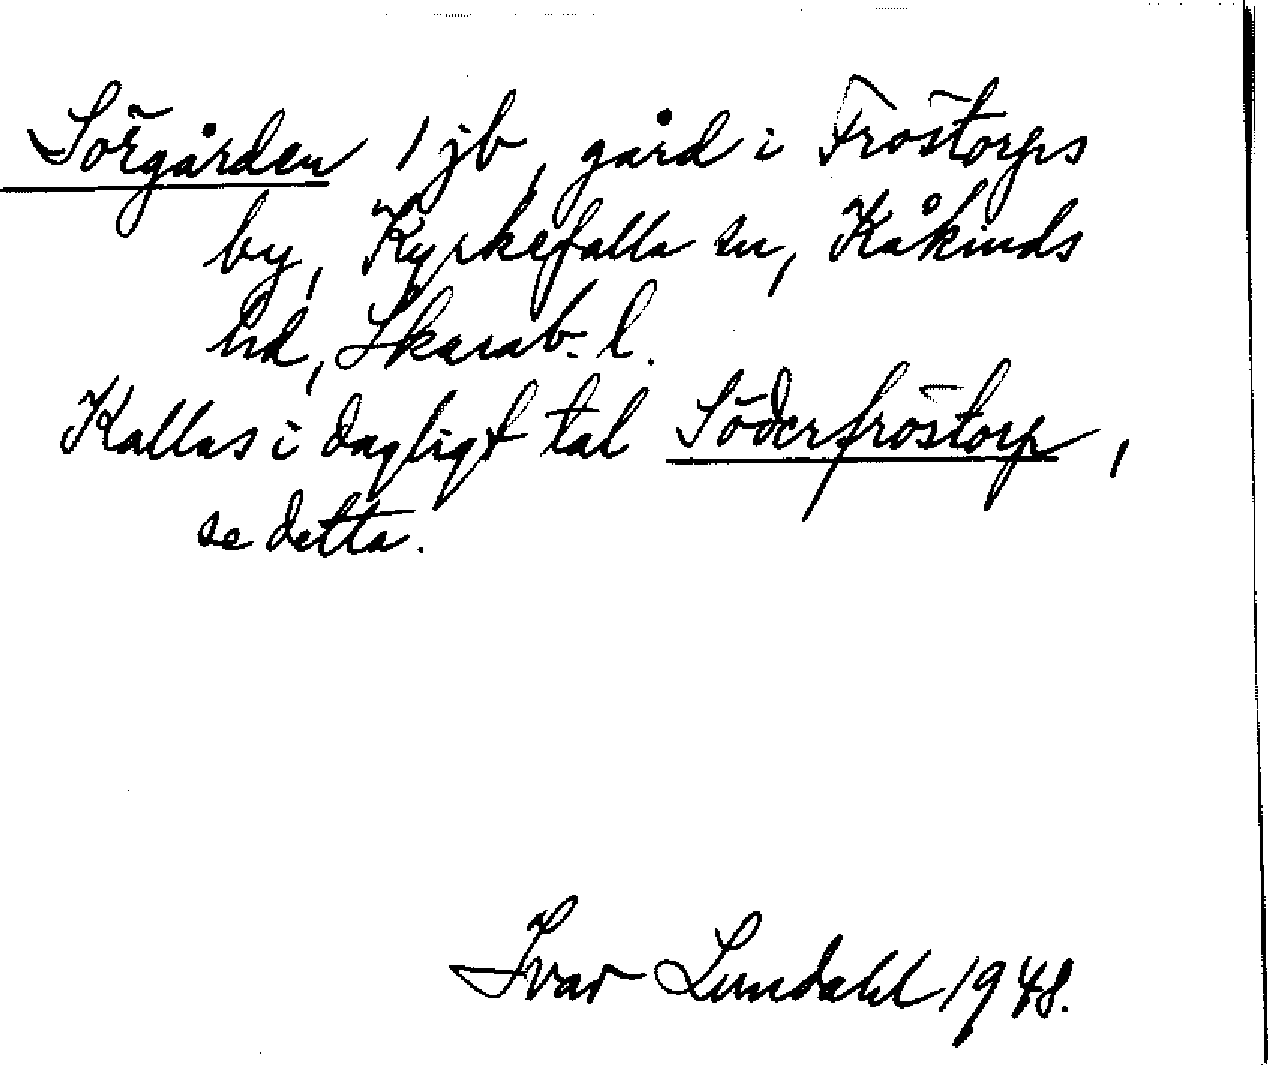 Sörgården 1 jb, gård i Fröstorps
by, Kyrkefalla sn, Kåkinds
hd, Skarab. l.
Kallas i dagligt tal Söderfröstorp,
se detta.
Ivar Lundahl 1948.